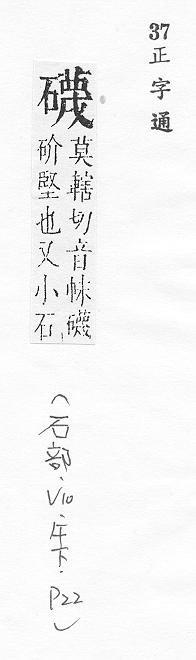 37
正字通
礣
莫轄切音帓礣
砎堅也又小石
(石部.V10.午下.P22)